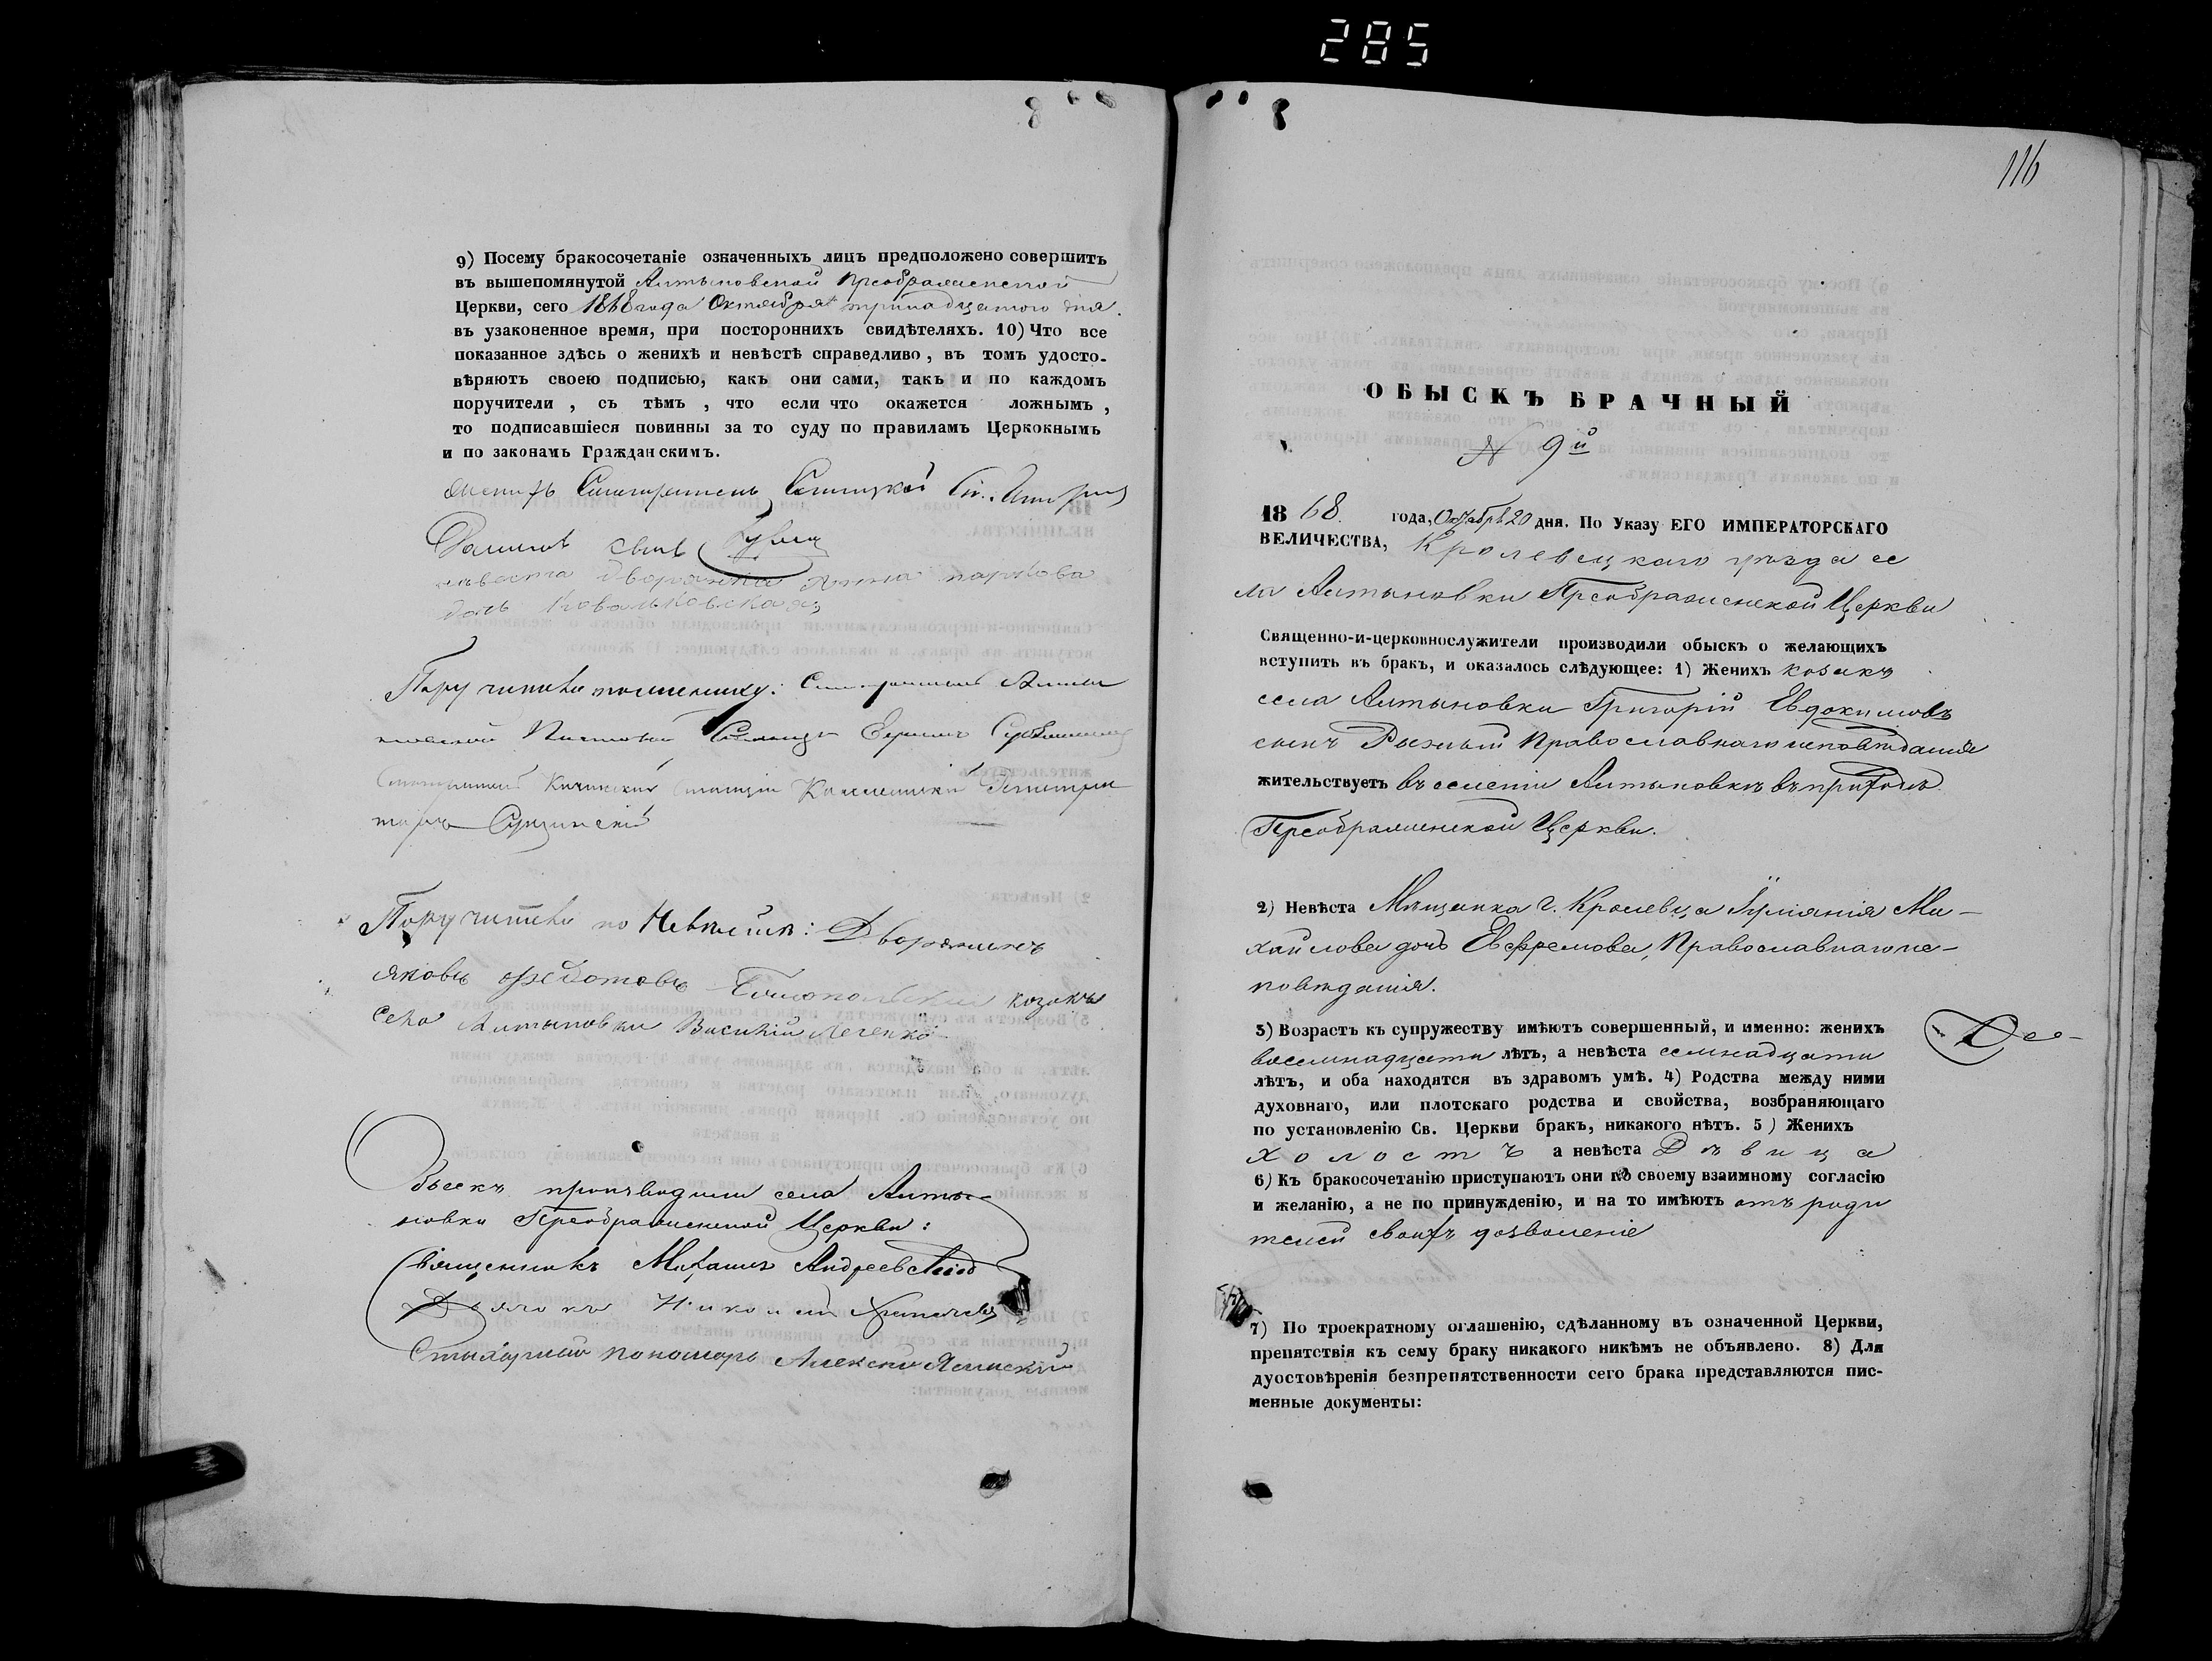 285
9) Посему бракосочетаніе означенныхъ лицъ предположено совершить
въ вышепомянутой Алтыновской Преображенской
Церкви, сего 1868 года Октября тринадцатого дня.
въ узаконенное время, при постороннихъ свидѣтеляхъ. 10) Что все
показанное здѣсь о женихѣ и невѣстѣ справедливо, въ томъ удосто-
вѣряютъ своею подписью, какъ они сами, такъ и по каждомъ
поручители, съ тѣмъ, что если что окажется ложнымъ,
то подписавшіеся повинны за то суду по правиламъ Церкокнымъ
и по законамъ Гражданскимъ.
женихъ Смотритель
сынъ
невеста дворянка Анна маркова
дочь Ковальковская
Поручители по женику:
Станціи
Станціи Колежскій Регистра
торъ
Поручители по Невѣсте: Дворянинъ
яковъ федотовъ козакъ
села Алтыновки Василій Леченко
Обыскъ производили села Алты-
новки Преображенской Церкви:
Священникъ Михаилъ Андреевскій
Дьячокъ Николай
Стихарный пономарь Алексей Яснискій
116
ОБЫСКЪ БРАЧНЫЙ
№ 9й
1868. года, Октября 20 дня. По Указу ЕГО ИМПЕРАТОРСКАГО
ВЕЛИЧЕСТВА, Кролевецкаго уѣзда се
ла Алтыновки Преображенской Церкви
Священно-и-церковнослужители производили обыскъ о желающихъ
вступить въ бракъ, и оказалось слѣдующее: 1) Женихъ козакъ
села Алтыновки Григорій Евдокимовъ
сынъ Рыжый Православнаго исповѣданія
жительствуетъ въ селеніи Алтыновкѣ въ приходѣ
Преображенской Церкви.
2) Невѣста Мѣщанка г. Кролевца Іуліанія Ми-
хайлова дочь Евфремова, Православнаго ис-
повѣданія.
3) Возрастъ къ супружеству имѣютъ совершенный, и именно: женихъ
восемнадцати лѣтъ, а невѣста семнадцати
лѣтъ, и оба находятся въ здравомъ умѣ. 4) Родства между ними
духовнаго, или плотскаго родства и свойства, возбраняющаго
по установленію Св. Церкви бракъ, никакого нѣтъ. 5) Женихъ
холостъ а невѣста Дѣвица
6) Къ бракосочетанію приступаютъ они по своему взаимному согласію
и желанію, а не по принужденію, и на то имѣютъ отъ роди
телей своихъ дозволеніе
7) По троекратному оглашенію, сдѣланному въ означенной Церкви,
препятствія къ сему браку никакого никѣмъ не объявлено. 8) Для
дуостовѣренія безпрепятственности сего брака представляются пис-
менные документы: